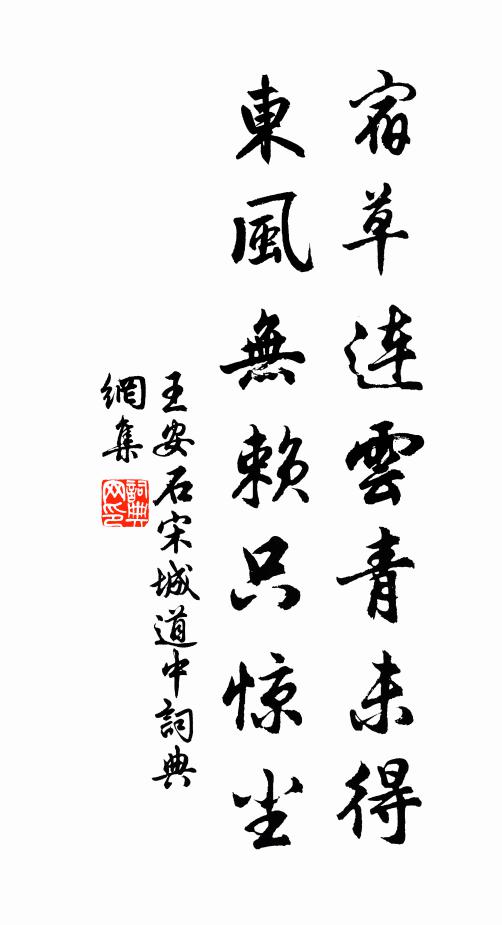 宿草連雲青未得
東風無賴只惊尘
王安石宋城道中詞典
網集
詞典
网印